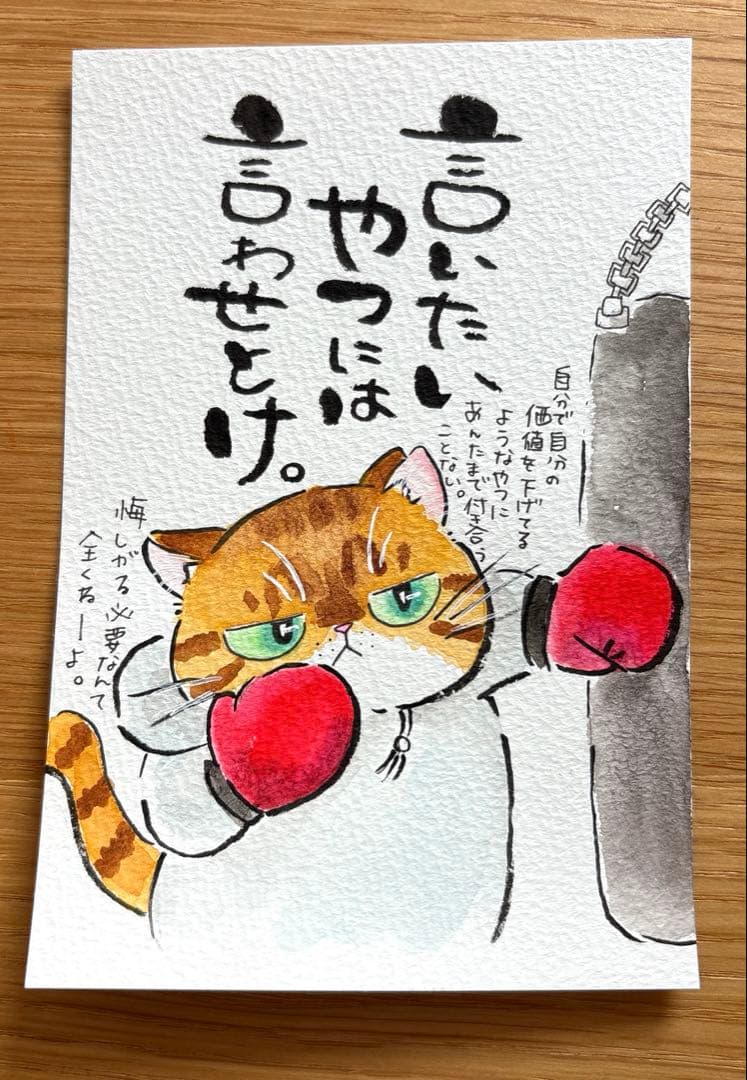 言いたい
やつには
言わせとけ。
自分で自分の
価値を下げてる
ようなやつに
あんたまで付き合う
ことない。
悔しがる必要なんて
全くなーよ。